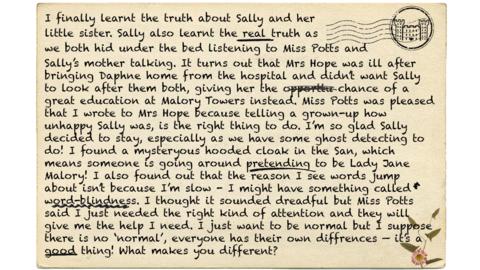 I finally learnt the truth about Sally and her
little sister. Sally also learnt the real truth as
we both hid under the bed listening to Miss Potts and
Sally's mother talking. It turns out that Mrs Hope was ill after
bringing Daphne home from the hospital and didn't want Sally
to look after them both, giving her the opportu chance of a
great education at Malory Towers instead. Miss Potts was pleased
that I wrote to Mrs Hope because telling a grown-up how
unhappy Sally was, is the right thing to do. I'm so glad Sally
decided to stay, especially as we have some ghost detecting to
do! I found a mysteryous hooded cloak in the San, which
means someone is going around pretending to be Lady Jane
Malory! I also found out that the reason I see words jump
about isn't because I'm slow - I might have something called
word-blindness. I thought it sounded dreadful but Miss Potts
said I just needed the right kind of attention and they will
give me the help I need. I just want to be normal but I suppose
there is no 'normal', everyone has their own diffrences – it's a
good thing! What makes you different?